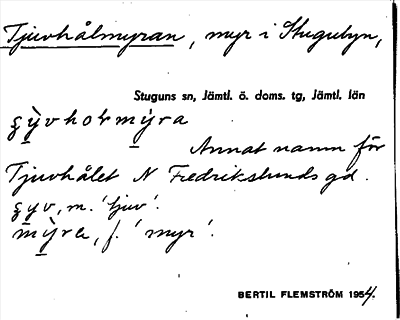 Tjuvhålmyran, myr i Stugubyn,
Stuguns sn, Jämtl. ö. doms. tg, Jämtl. län
Annat namn för
Tjuvhålet N Fredrikslunds gd.
m. 'tjuv'.
f. 'myr'.
BERTIL FLEMSTRÖM 1954.